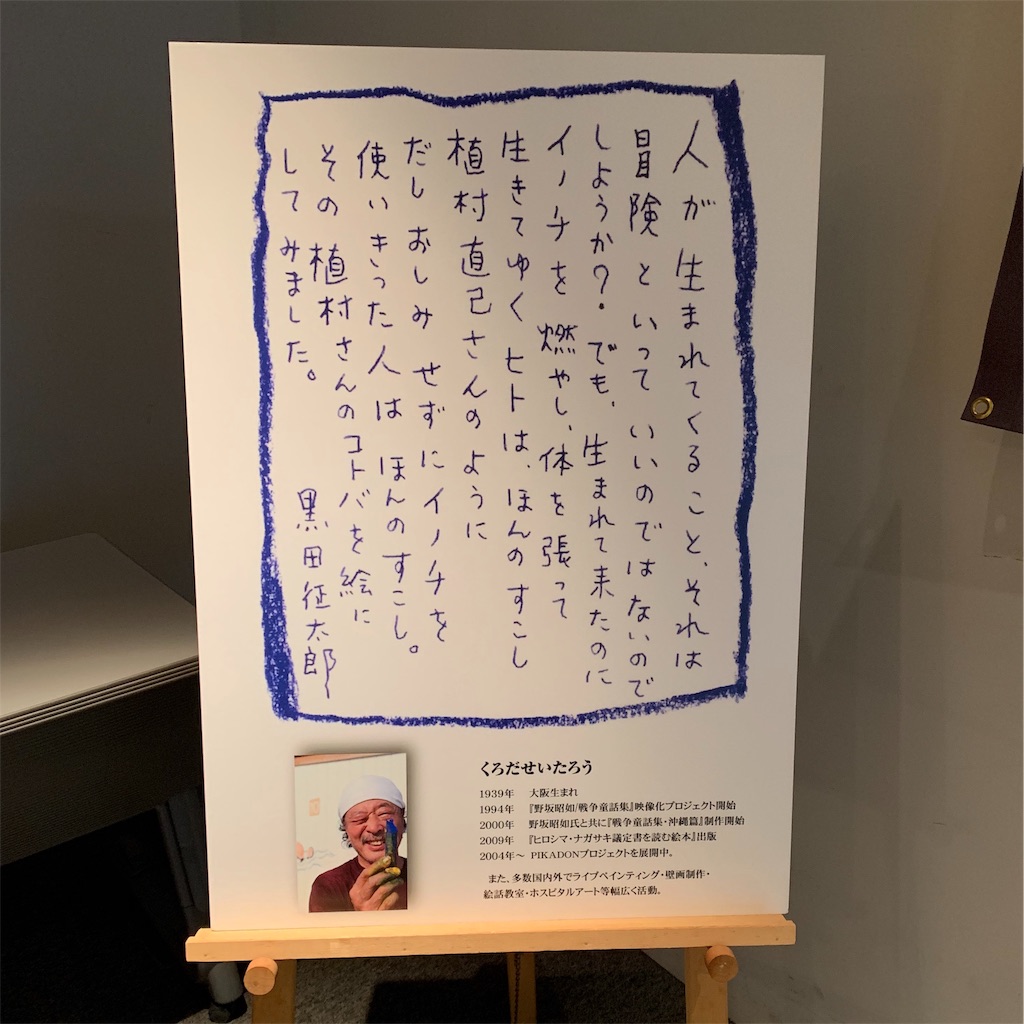 人が生まれてくること、それは
冒険といっていいのではないので
しようか?でも、生まれて来たのに
イノチを燃やし、体を張って
生きてゆくヒトは、ほんのすこし
植村直己さんのように
だしおしみせずにイノチを
使いきった人はほんのすこし。
その植村さんのコトバを絵に
してみました。
黒田征太郎
くろだせいたろう
1939年 大阪生まれ
1994年 『野坂昭如/戦争童話集』映像化プロジェクト開始
2000年 野坂昭如氏と共に『戦争童話集・沖縄篇』制作開始
2009年 『ヒロシマ・ナガサキ議定書を読む絵本』出版
2004年〜 PIKADONプロジェクトを展開中。
また、多数国内外でライブペインティング・壁画制作・
絵話教室・ホスピタルアート等幅広く活動。